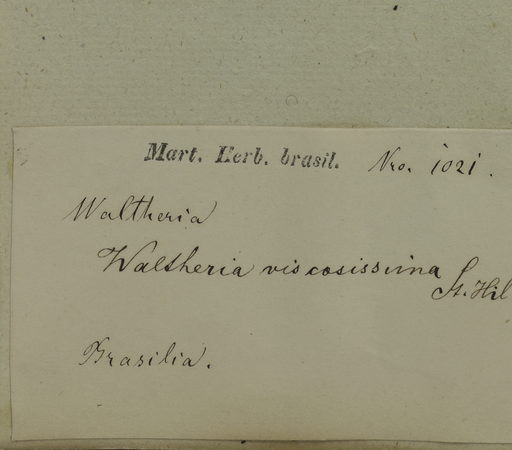 Mart. Herb. brasil. Nro. 1021.
Waltheria
Waltheria viscosissima
St. Hil
Brasilia.